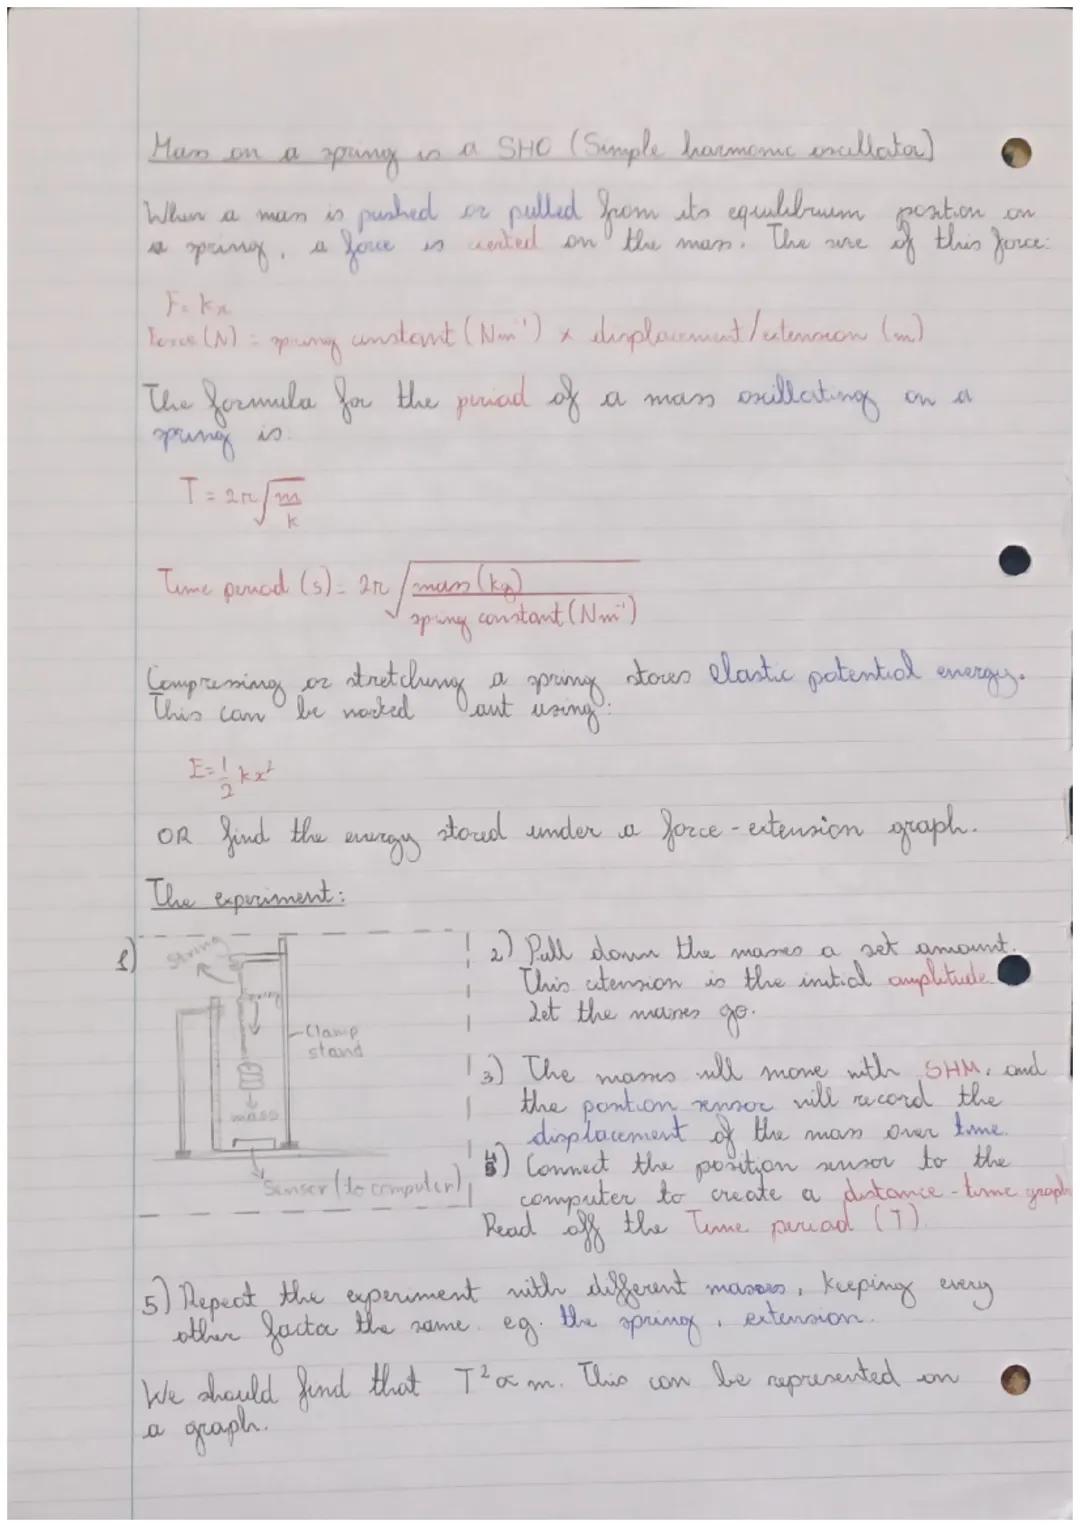 Mass on a spring is a SHO (Simple harmonic oscillator)
When a mass is pushed or pulled from its equilibrium position on
a spring, a force is exerted on the mass. The size of this force:
F = kx
Force (N) = spring constant (Nm⁻¹) x displacement/extension (m)
The formula for the period of a mass oscillating on a
spring is:
T = 2π√(m/k)
Time period (s) = 2π√(mass (kg)/spring constant (Nm⁻¹))
Compressing or stretching a spring stores elastic potential energy.
This can be worked out using:
E = 1/2 kx²
OR find the energy stored under a force-extension graph.
The experiment:
1)
String
spring
Clamp
stand
mass
Sensor (to computer)
2) Pull down the masses a set amount.
This extension is the initial amplitude.
Let the masses go.
3) The masses will move with SHM, and
the position sensor will record the
displacement of the mass over time.
4) Connect the position sensor to the
computer to create a distance-time graph
Read off the Time period (T).
5) Repeat the experiment with different masses, keeping every
other factor the same. eg. the spring, extension.
We should find that T² ∝ m. This can be represented on
a graph.